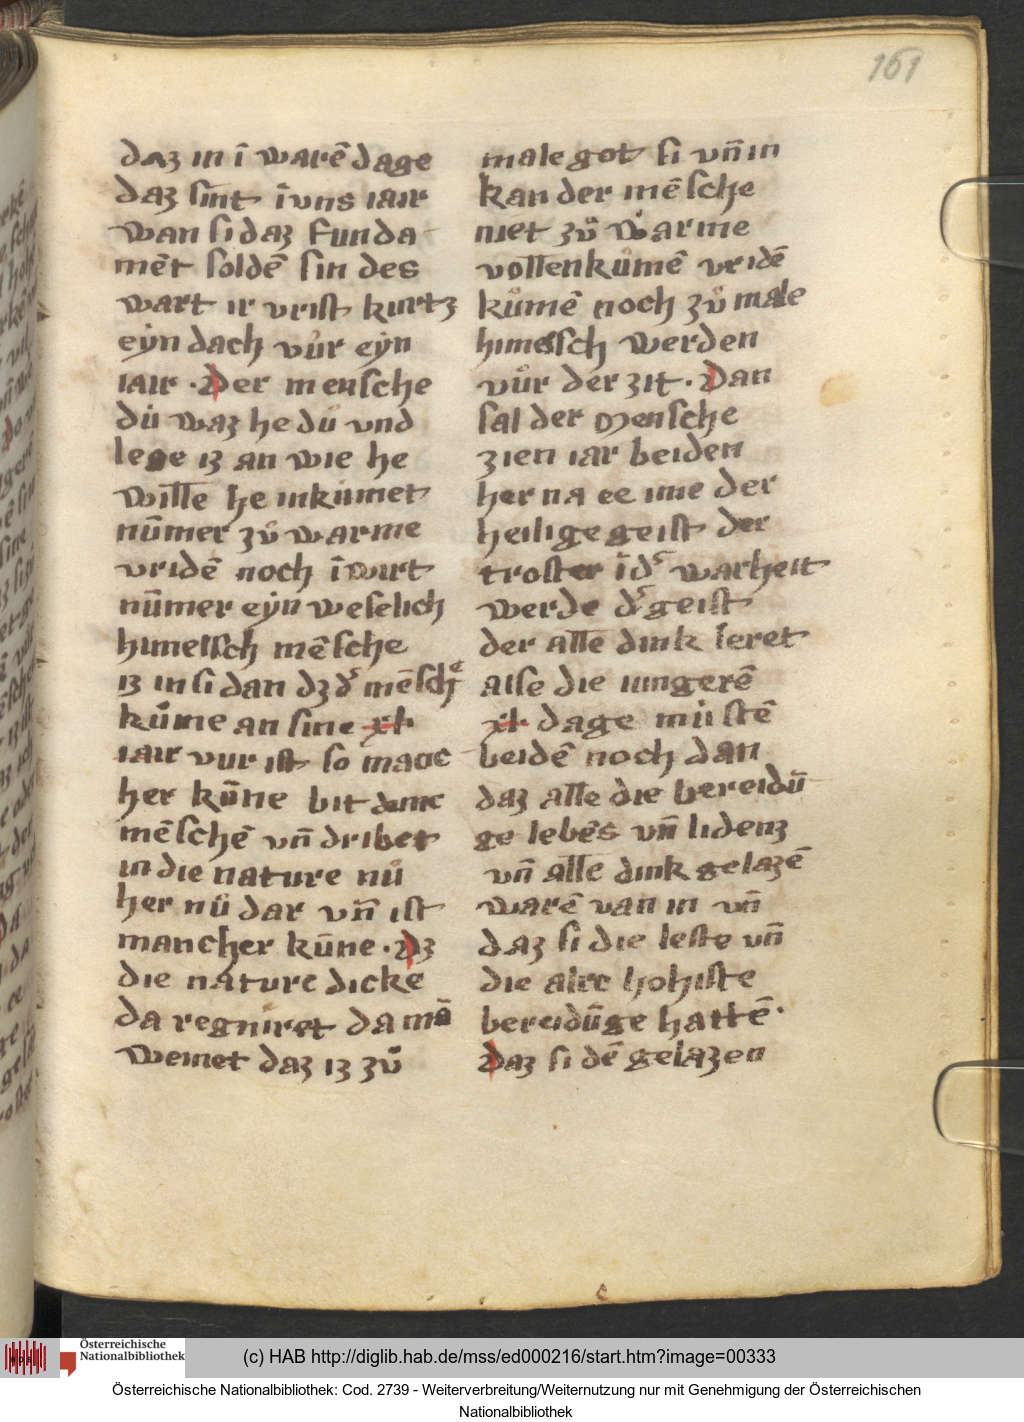 161
daz in ī warē dage
daz sint ī vns iair
wan si daz funda
mēt soldē sin des
wart ir vrist kurtz
eẏn dach vuͦr eẏn
iair · Der mensche
duͦ waz he duͦ vnd
lege iz an wie he
wille he inkumet
nūmer zuͦ warme
vridē noch ī wirt
nūmer eẏn weselich
himelsch mēsche
iz in si dan dz dˢ mēschͤ
kuͦme an sine xl
iair vur ist so manc
her kūne bit deme
mēschē vn̄ dribet
in die nature nuͦ
her nuͦ dar vn̄ ist
mancher kūne · Dz
die nature dicke
da regniret da mā
weinet daz iz zuͦ
male got si vn̄ in
kan der mēsche
niet zuͦ warme
vollenkuͦmē vridē
kuͦmē noch zuͦ male
himelsch werden
vuͦr der zit · Dan
sal der mensche
zien iar beiden
her na ee ime der
heilige geist der
troster ī dˢ warheit
werde dˢ geist
der alle dink leret
alse die iungerē
xl dage muͦstē
beidē noch dan
daz alle die bereidū
ge lebēs vn̄ lidenz
vn̄ alle dink gelazē
warē van in vn̄
daz si die leste vn̄
die alre hohiste
bereidūge hattē ·
Daz si dē gelazen
Österreichische
Nationalbibliothek
(c) HAB http://diglib.hab.de/mss/ed000216/start.htm?image=00333
Österreichische Nationalbibliothek: Cod. 2739 - Weiterverbreitung/Weiternutzung nur mit Genehmigung der Österreichischen
Nationalbibliothek